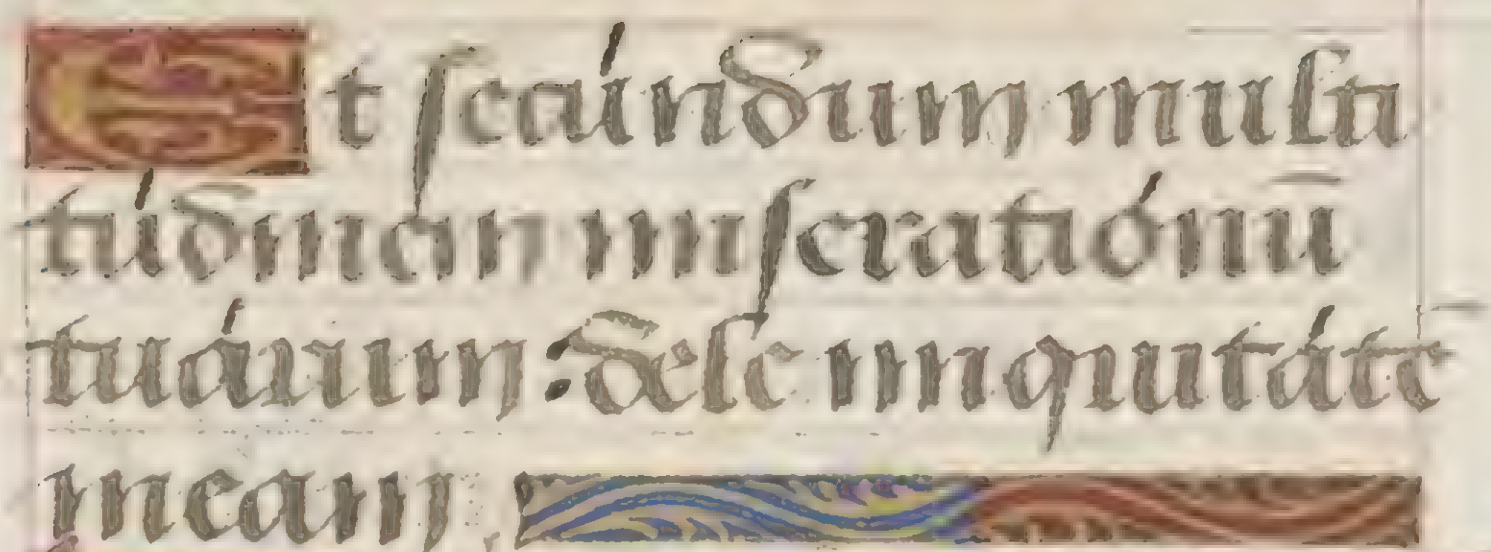 Et secúndum multi
túdinem miserationū
tuárum: dele iniquitátē
meam.